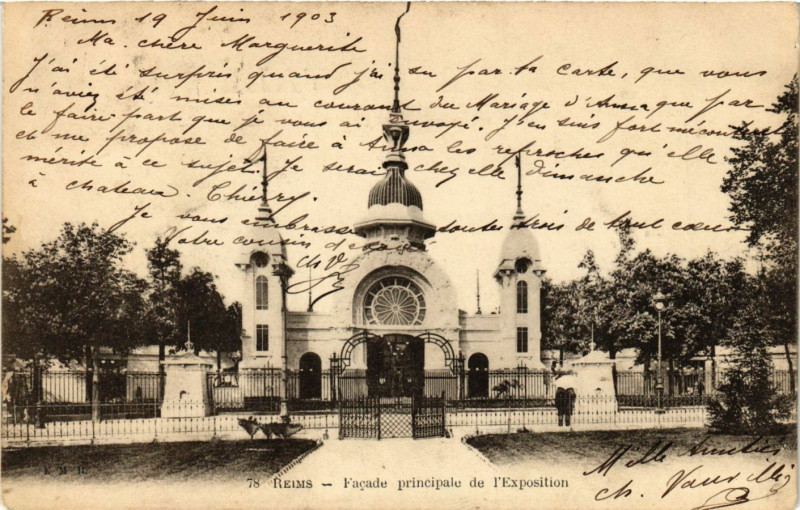 Reims 19 Juin 1903
Ma chère Marguerite
J'ai été surpris quand j'ai su par ta carte, que vous
n'aviez été mises au courant du Mariage d'Anna que par
le faire part que je vous ai envoyé. J'en suis fort mécontent
et me propose de faire à Anna les reproches qu'elle
mérite à ce sujet. Je serai chez elle dimanche
à chateau Chiéry.
Je vous embrasse toutes trois de tout coeur
Votre cousin
Ch V
Mlle
Ch.
E. M. R.
78 REIMS — Façade principale de l'Exposition